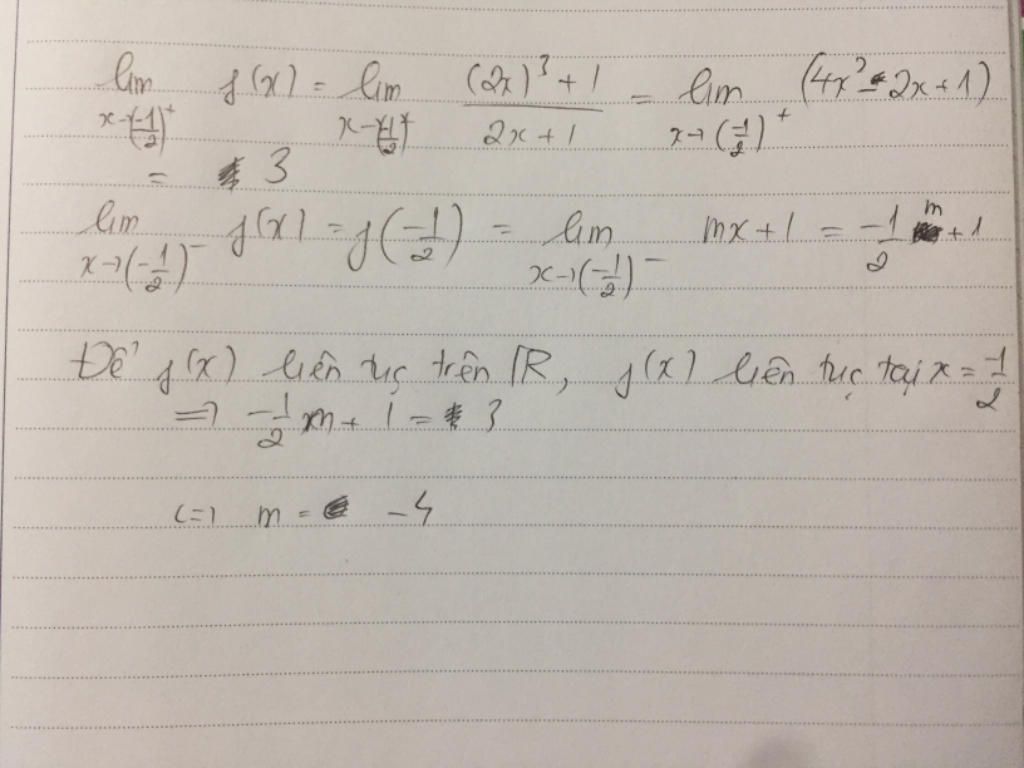 lim x→(-1/2)⁺ f(x) = lim x→(-1/2)⁺ ((2x)³ + 1)/(2x + 1) = lim x→(-1/2)⁺ (4x² - 2x + 1)
= 3
lim x→(-1/2)⁻ f(x) = f(-1/2) = lim x→(-1/2)⁻ mx + 1 = -1/2 m + 1
Để f(x) liên tục trên R, f(x) liên tục tại x = -1/2
=> -1/2 m + 1 = 3
<=> m = -4